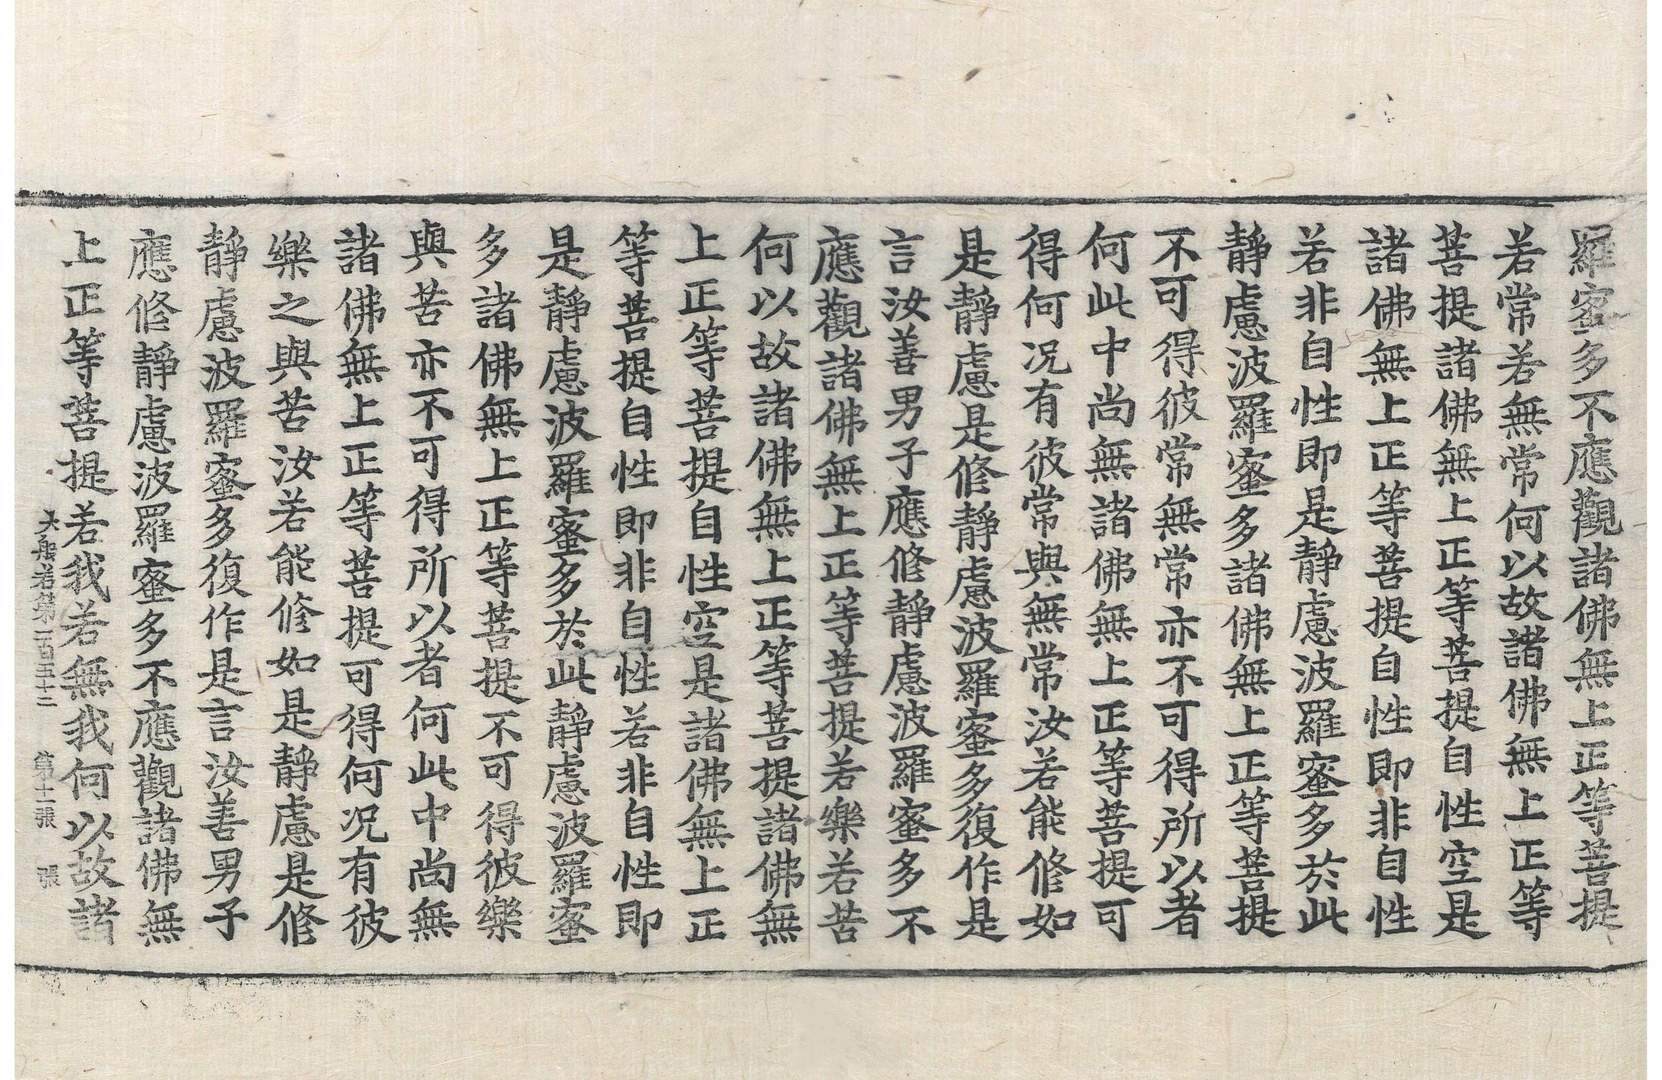 羅蜜多不應觀諸佛無上正等菩提
若常若無常何以故諸佛無上正等
菩提諸佛無上正等菩提自性空是
諸佛無上正等菩提自性即非自性
若非自性即是靜慮波羅蜜多於此
靜慮波羅蜜多諸佛無上正等菩提
不可得彼常無常亦不可得所以者
何此中尚無諸佛無上正等菩提可
得何况有彼常與無常汝若能修如
是靜慮是修靜慮波羅蜜多復作是
言汝善男子應修靜慮波羅蜜多不
應觀諸佛無上正等菩提若樂若苦
何以故諸佛無上正等菩提諸佛無
上正等菩提自性空是諸佛無上正
等菩提自性即非自性若非自性即
是靜慮波羅蜜多於此靜慮波羅蜜
多諸佛無上正等菩提不可得彼樂
與苦亦不可得所以者何此中尚無
諸佛無上正等菩提可得何况有彼
樂之與苦汝若能修如是靜慮是修
靜慮波羅蜜多復作是言汝善男子
應修靜慮波羅蜜多不應觀諸佛無
上正等菩提若我若無我何以故諸
大般若第一百五十二 第十一張 張